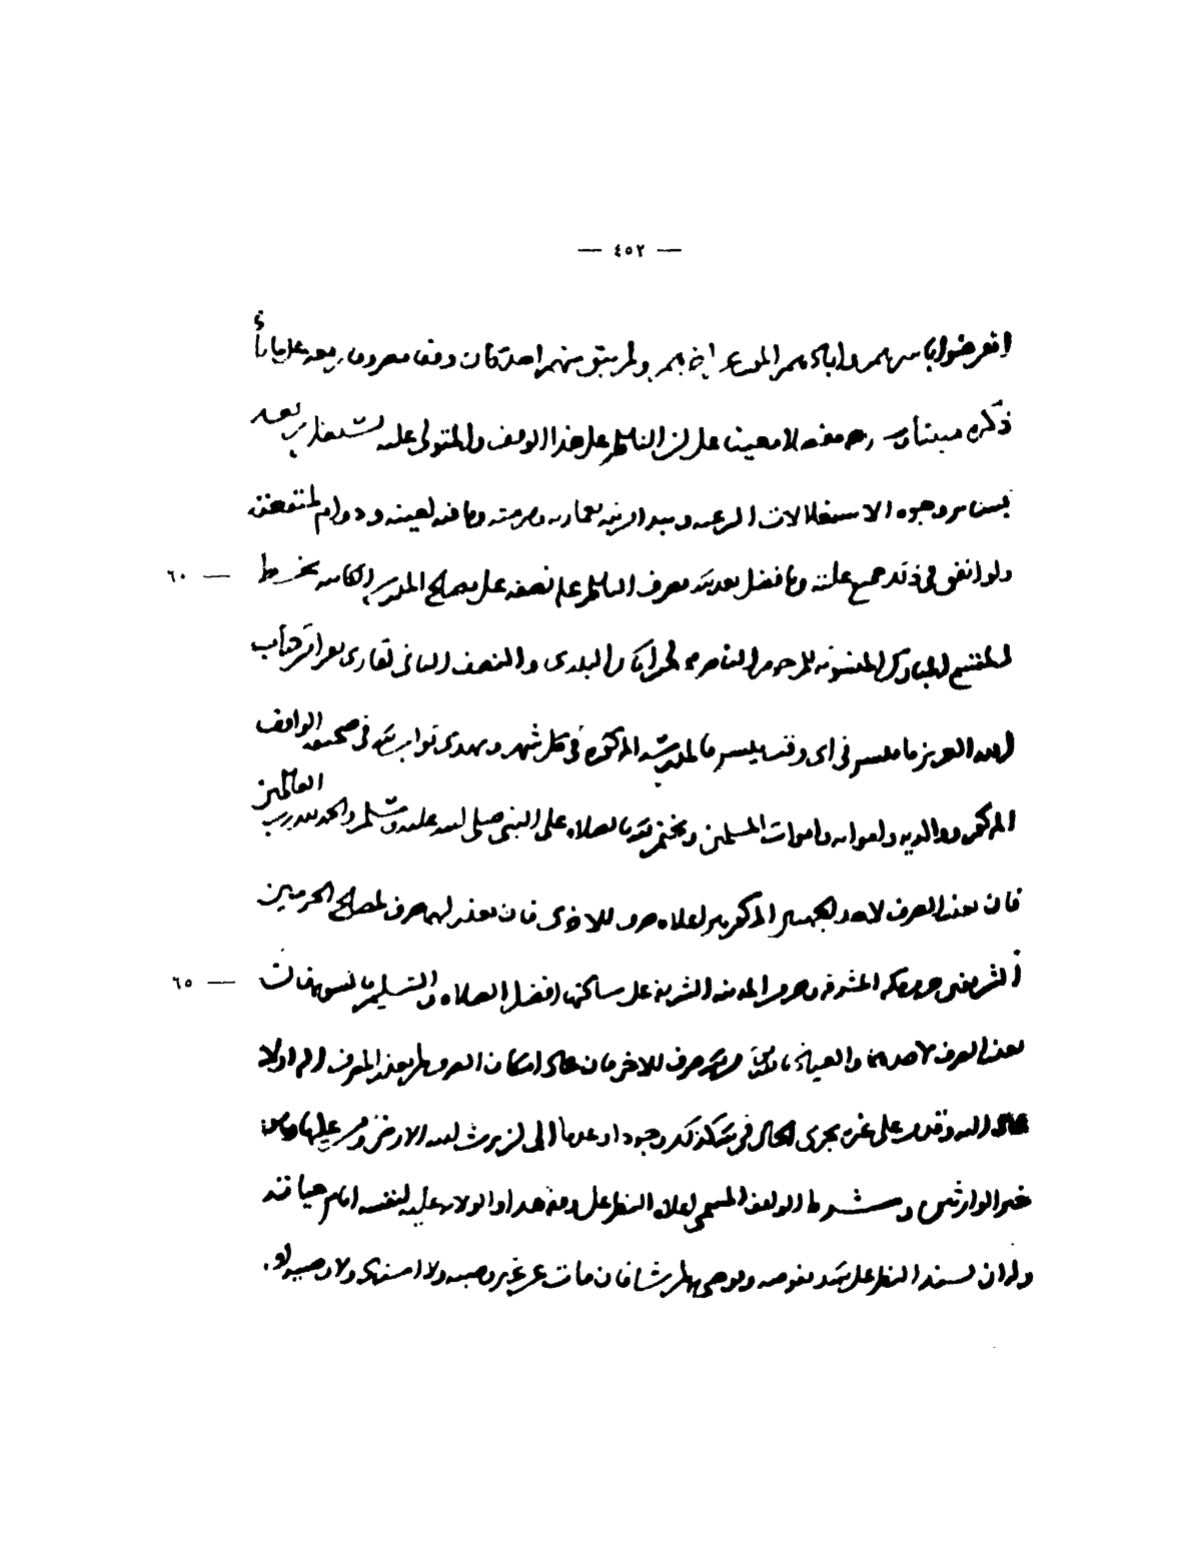 — ٤٥٢ —
انقرضوا باسرهم واباد هم الموت عن اخرهم ولم يبق منهم احد كان وقفا مصروفا ريعه على ما
ذكره مفصلا معينا على ان الناظر على هذا الوقف والمتولى عليه يستغله
بسائر وجوه الاستغلالات الشرعيه ويبدا من ريعه بعمارته ومرمته وما فيه بقا لعينه ودوام لمنفعته
٦٠ — ولو انفق فى ذلك جميع غلته وما فضل بعد ذلك يصرف الناظر نصفه على مصالح المدرسه الكاينه بخط
المبارك المرحوم الناصرى البلدى والنصف الثانى لقارى يقرا من كتاب
الله العزيز ما تيسر فى اى وقت تيسر بالمدرسه المذكوره فى كل شهر ويهدى ثواب ذلك فى صحيفه الواقف
المذكور ووالديه وامواته واموات المسلمين ويختم ذلك بالصلاه على النبى صلى الله عليه وسلم والحمد لله رب العالمين
فان تعذر الصرف لاحد الجهتين المذكورتين اعلاه صرف للاخرى فان تعذر لهما صرف لمصالح الحرمين
٦٥ — الشريفين حرم مكه المشرفه وحرم المدينه الشريفه على ساكنها افضل الصلاه والتسليم بالسويه فان
تعذر الصرف لاحدهما والعياذ بالله من ذلك صرف للاخر فان عاد امكان الصرف لمن تعذر الصرف اليه اولا
عاد اليه وقدم على غيره يجرى الحال فى ذلك كذلك وجودا وعدما الى ان يرث الله الارض ومن عليها وهو
خير الوارثين وشرط الواقف المسمى اعلاه النظر على وقفه هذا والولايه عليه لنفسه ايام حياته
وله ان يسند النظر على ذلك ويفوضه ويوصى به لمن شا فان مات عن غير وصيه ولا اسناد ولا وصيه او